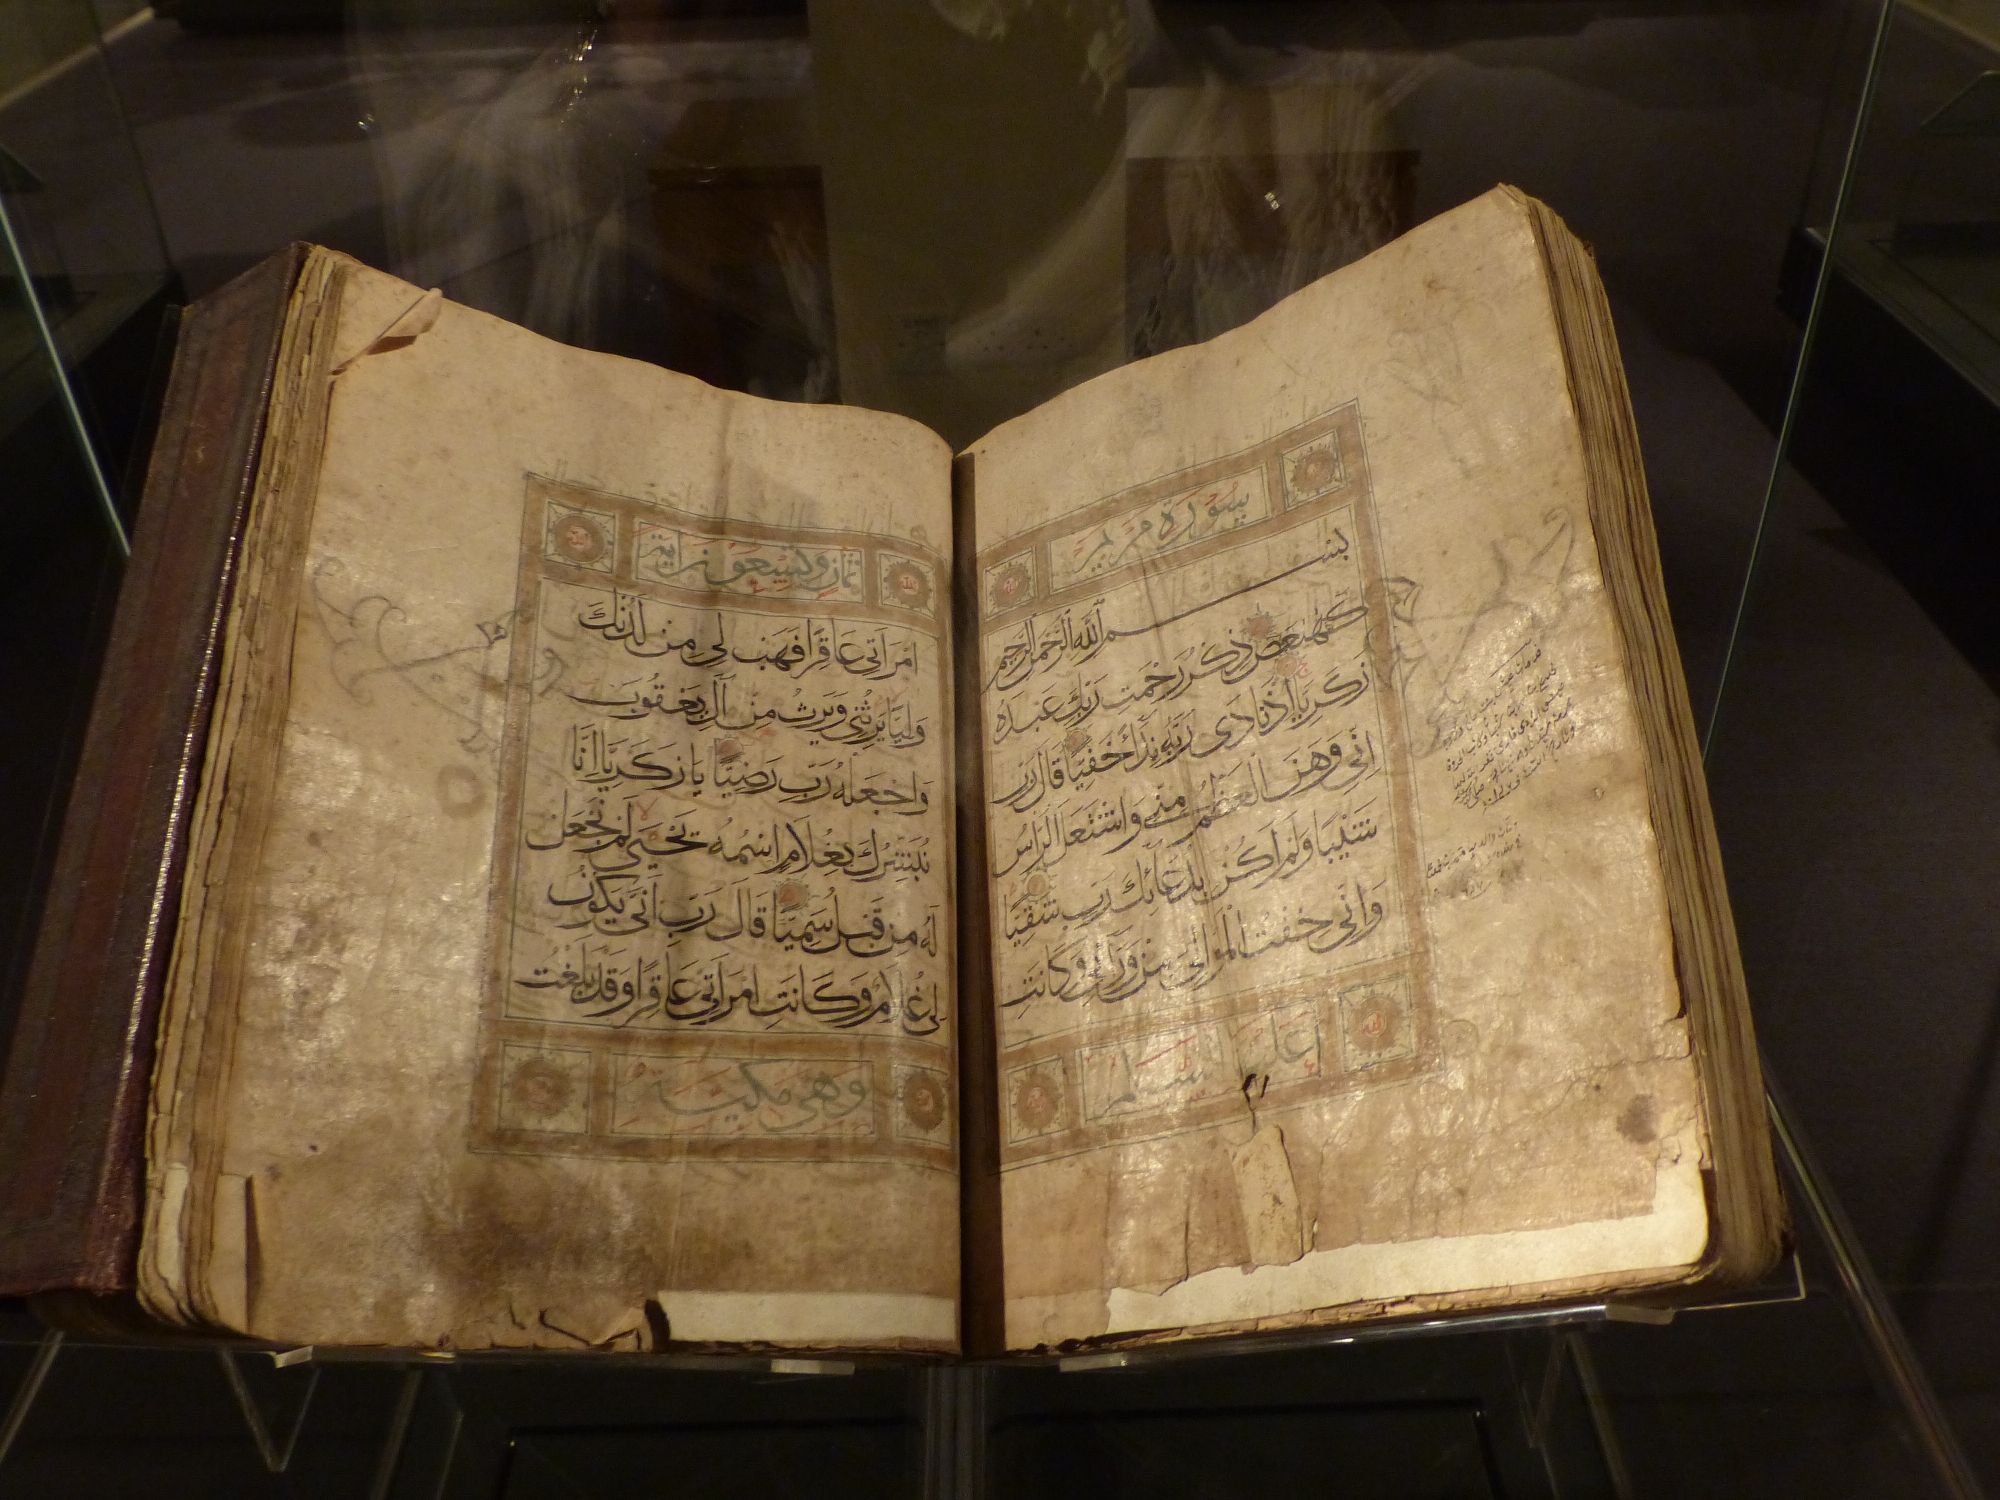 سورة مريم
بسم الله الرحمن الرحيم
كهيعص ذكر رحمت ربك عبده
زكريا اذ نادى ربه نداء خفيا قال رب
اني وهن العظم مني واشتعل الراس
شيبا ولم اكن بدعائك رب شقيا
واني خفت الموالي من وراءي وكانت
عليها السلم
ثمان وتسعون اية
امراتي عاقرا فهب لي من لدنك
وليا يرثني ويرث من آل يعقوب
واجعله رب رضيا يا زكريا انا
نبشرك بغلام اسمه يحيى لم نجعل
له من قبل سميا قال رب انى يكون
لي غلام وكانت امراتي عاقرا وقد بلغت
وهي مكية